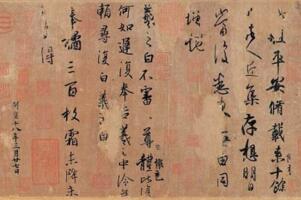 此粗平安脩載來十餘
日諸人近集存想明日
當復悉來無由同
增慨
羲之白不審尊體比復
何如遲復奉告羲之中冷無
賴尋復白羲之白
奉橘三百枚霜未降未
可多得
開皇十八年三月廿七日